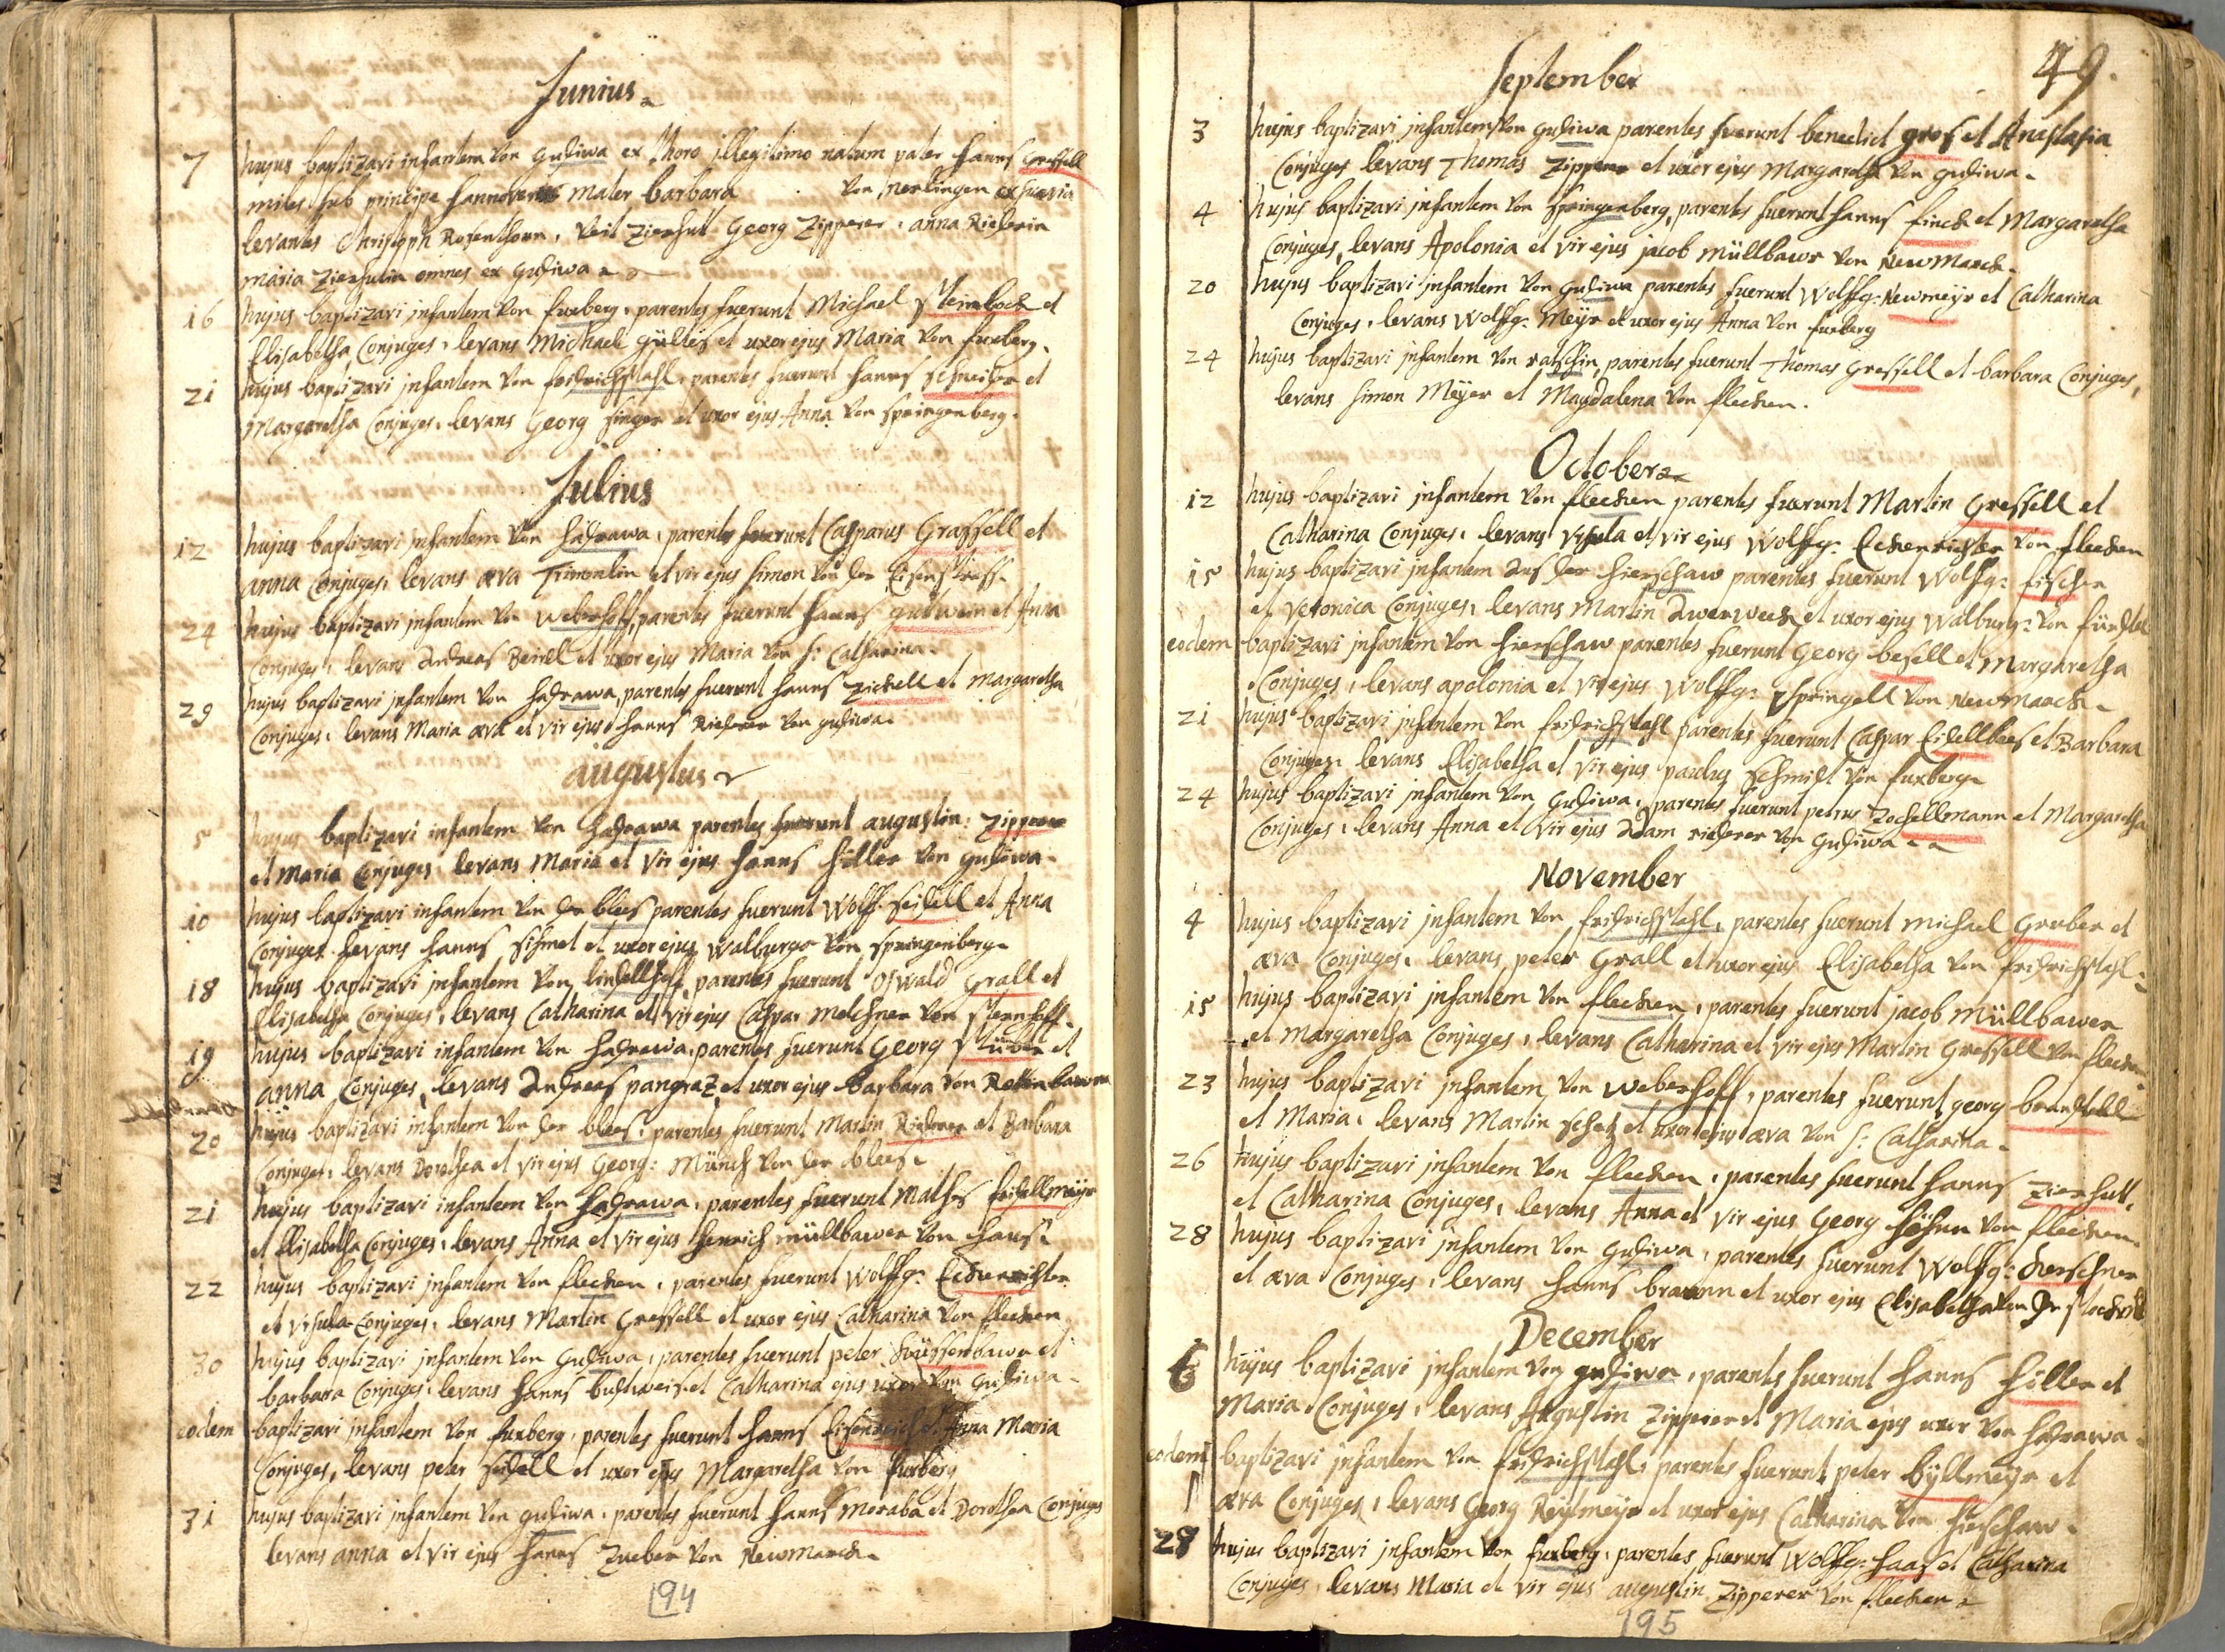 Junius
7 hujus baptizavi infantem von gudiwa ex thoro illegitimo natum pater hanns Gressell
miles sub principe hannoveres mater barbara von Nerlingen ex suevia
levantes Christoph Rosenthorn, Veit Zierhut Georg Zipperer, anna Riederin
maria Zierhutin omnes ex gudiwa
16 hujus baptizavi infantem von fuxberg, parentes fuerunt Michael Steinbock et
Elisabetha Conjuges, levans Michaell et uxor ejus Maria von fuxberg.
21 hujus baptizavi infantem von fridrichstahl, parentes fuerunt hanns schneider et
Margaretha Conjuges, levans Georg singer et uxor ejus Anna von springenberg.
Julius
12 hujus baptizavi infantem von hadrawa, parentes fuerunt Casparus Grassell et
anna Conjuges, levans æva Trimmlin et vir ejus simon von der
24 hujus baptizavi infantem von weberhoff, parentes fuerunt hanns gutwein et Anna
Conjuges, levans Andreas Beindl et uxor ejus Maria von S: Catharina.
29 hujus baptizavi infantem von hadrawa, parentes fuerunt hanns Zickell et Margaretha
Conjuges, levans Maria æva et vir ejus hanns Riederer von gudiwa.
augustus
5 hujus baptizavi infantem von hadrawa parentes fuerunt augustin: Zipperer
et Maria Conjuges, levans Maria et vir ejus hanns höller von gudiwa.
10 hujus baptizavi infantem von der blees parentes fuerunt Wolff: seidell et Anna
Conjuges levans hanns et uxor ejus walburga von springenberg
18 hujus baptizavi infantem von parentes fuerunt Oswald Grall et
Elisabetha Conjuges, levans Catharina et vir ejus Caspar Melchner von sternhoff.
19 hujus baptizavi infantem von hadrawa, parentes fuerunt Georg et
anna Conjuges, levans Andreas pangraz et uxor ejus barbara von Rotenbaum
20 hujus baptizavi infantem von der blees, parentes fuerunt Martin Riederer et Barbara
Conjuges, levans Dorothea et vir ejus Georg: Münch von der blees.
21 hujus baptizavi infantem von hadrawa, parentes fuerunt Mathes seidellmeijr
et Elisabetha Conjuges, levans Anna et vir ejus henrich müllbawer von
22 hujus baptizavi infantem von flecken, parentes fuerunt Wolffg: Eckenrichter
et Ursula Conjuges, levans Martin Gressell et uxor ejus Catharina von flecken
30 hujus baptizavi infantem von Gudiwa, parentes fuerunt peter et
barbara Conjuges, levans hanns et Catharina ejus uxor von Gudiwa.
eodem baptizavi infantem von fuxberg, parentes fuerunt hanns Eisenreich et Anna Maria
Conjuges, levans peter seidell et uxor ejus Margaretha von fuxberg
31 hujus baptizavi infantem von gudiwa, parentes fuerunt hanns Moraba et Dorothea Conjuges
levans anna et vir ejus hanns Zueber von Newmarck.
194
49.
September
3 hujus baptizavi infantem von gudiwa parentes fuerunt benedict gros et Anastasia
Conjuges levans Thomas Zipperer et uxor ejus Margaretha von gudiwa.
4 hujus baptizavi infantem von springenberg, parentes fuerunt hanns finck et Margaretha
Conjuges, levans Apolonia et vir ejus jacob Müllbawr von NewMarck.
20 hujus baptizavi infantem von gudiwa parentes fuerunt Wolffg: Newmeijr et Catharina
Conjuges, levans Wolffg: Meijr et uxor ejus Anna von fuxberg
24 hujus baptizavi infantem von ratschin, parentes fuerunt Thomas Gressell et barbara Conjuges,
levans simon Meijer et Magdalena von flecken.
October
12 hujus baptizavi infantem von flecken parentes fuerunt Martin Gressell et
Catharina Conjuges, levans Ursula et vir ejus Wolffg: Eckenrichter von flecken
15 hujus baptizavi infantem aus der hierschaw parentes fuerunt Wolffg: fischer
et Veronica Conjuges, levans Martin et uxor ejus walburg: von
eodem baptizavi infantem von hierschaw parentes fuerunt Georg besell et Margaretha
Conjuges, levans apolonia et vir ejus Wolffg: springell von Newmarck.
21 hujus baptizavi infantem von fridrichstahl parentes fuerunt Caspar et Barbara
Conjuges, levans Elisabetha et vir ejus paulus schmidt von fuxberg
24 hujus baptizavi infantem von Gudiwa, parentes fuerunt petrus Zochellmann et Margaretha
Conjuges, levans Anna et vir ejus Adam riederer von Gudiwa
November
4 hujus baptizavi infantem von fridrichstahl, parentes fuerunt michael Gruber et
æva Conjuges, levans peter Grall et uxor ejus Elisabetha von fridrichstahl
15 hujus baptizavi infantem von flecken, parentes fuerunt jacob Müllbawer
et Margaretha Conjuges, levans Catharina et vir ejus Martin Gressell von flecken
23 hujus baptizavi infantem von weberhoff, parentes fuerunt georg
et Maria, levans Martin schetz et uxor ejus æva von S: Catharina.
26 hujus baptizavi infantem von flecken, parentes fuerunt hanns Zierhutt,
et Catharina Conjuges, levans Anna et vir ejus Georg von flecken.
28 hujus baptizavi infantem von Gudiwa, parentes fuerunt Wolffg: kerschner
et æva Conjuges, levans hanns braunn et uxor ejus Elisabetha von der
December
6 hujus baptizavi infantem von gudiwa, parentes fuerunt hanns höller et
Maria Conjuges, levans Augustin Zipperer et Maria ejus uxor von hadrawa.
eodem baptizavi infantem von fridrichstahl, parentes fuerunt peter büllmeijr et
æva Conjuges, levans Georg Reijtmeijr et uxor ejus Catharina von hierschaw.
28 hujus baptizavi infantem von fuxberg, parentes fuerunt Wolffg: haas et Catharina
Conjuges, levans Maria et vir ejus augustin Zipperer von flecken
195